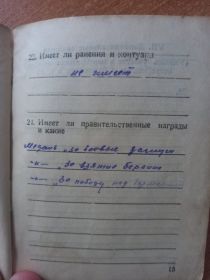 23. Имеет ли ранения и контузии
не имеет
24. Имеет ли правительственные награды
и какие
Медаль „За боевые заслуги
-„- „За взятие Берлина
-„- „За победу над Германией
15